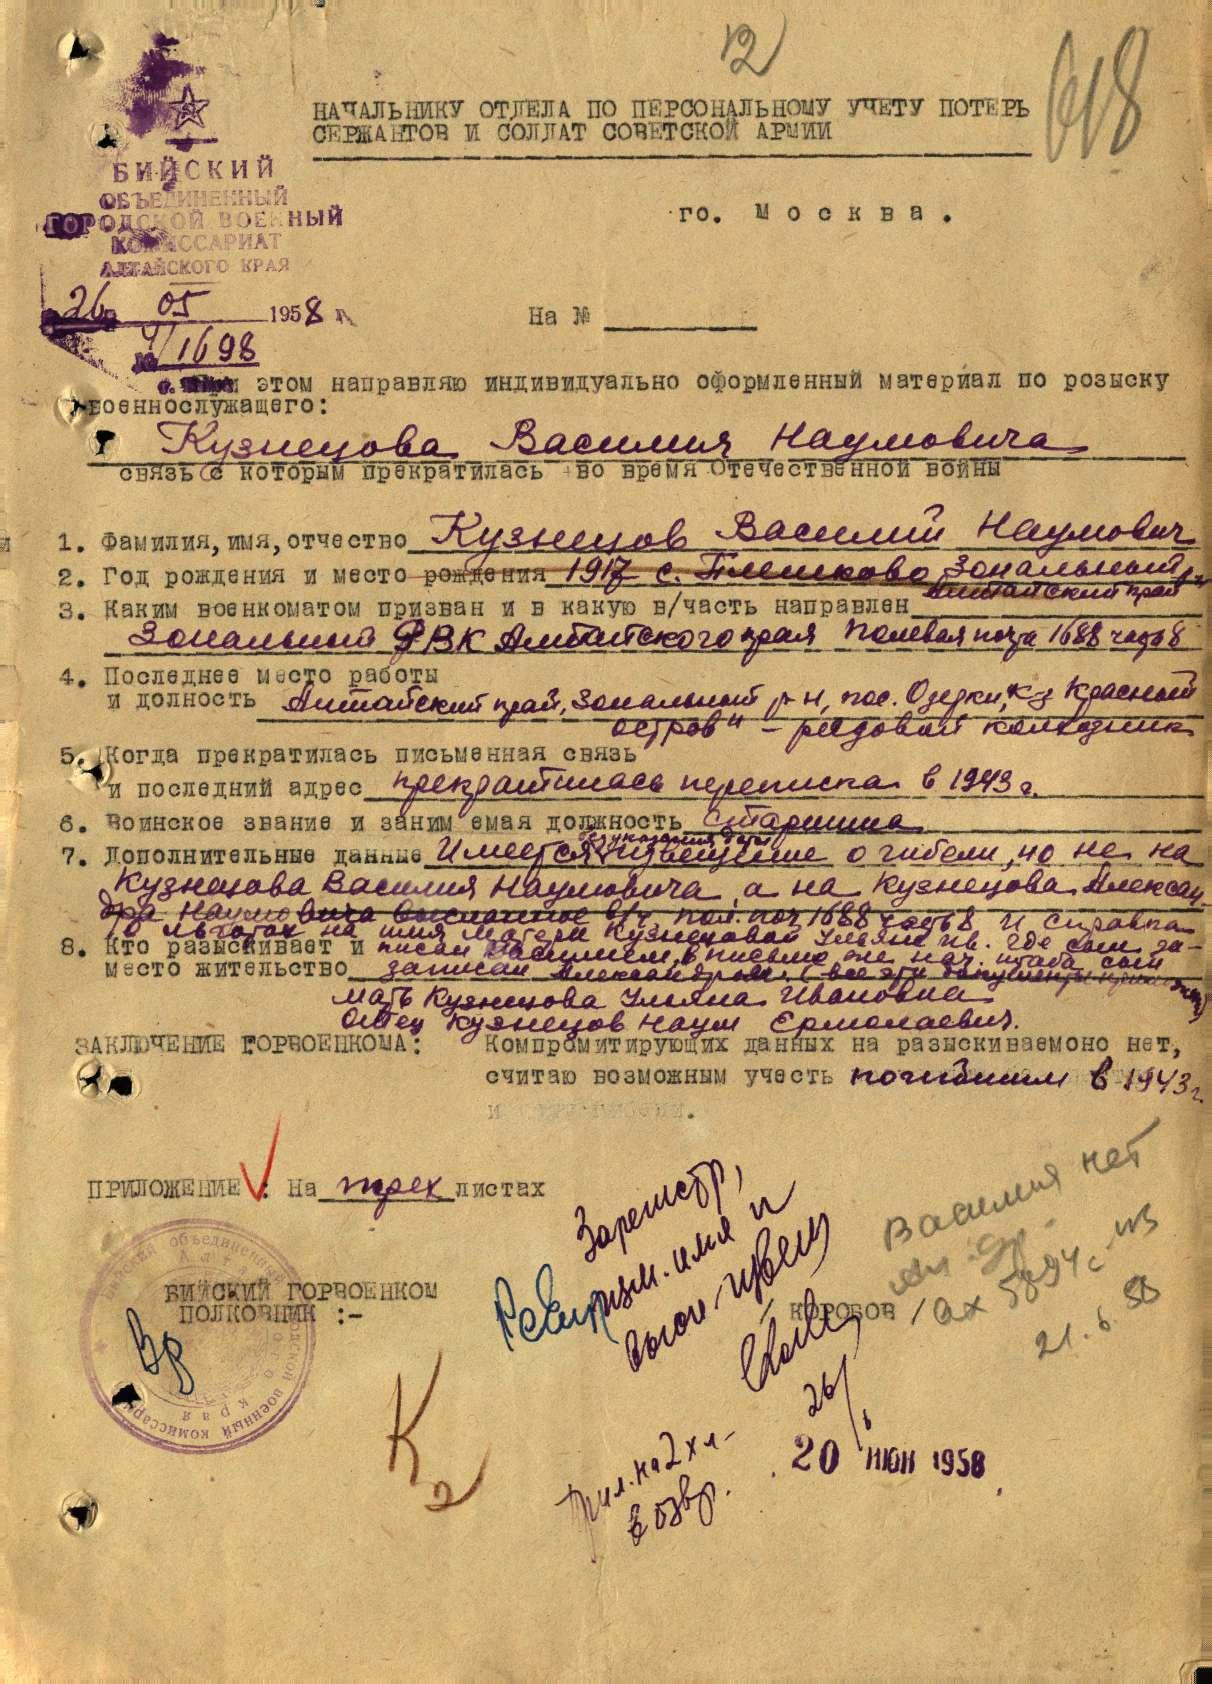 12
618
НАЧАЛЬНИКУ ОТДЕЛА ПО ПЕРСОНАЛЬНОМУ УЧЕТУ ПОТЕРЬ
СЕРЖАНТОВ И СОЛДАТ СОВЕТСКОЙ АРМИИ
БИЙСКИЙ
ОБЪЕДИНЕННЫЙ
ГОРОДСКОЙ ВОЕННЫЙ
КОМИССАРИАТ
АЛТАЙСКОГО КРАЯ
го. Москва.
26 05 1958 г.
На №
№ 4/1698
этом направляю индивидуально оформленный материал по розыску
военнослужащего:
Кузнецова Василия Наумовича
связь с которым прекратилась во время Отечественной войны
1. Фамилия, имя, отчество Кузнецов Василий Наумович
2. Год рождения и место рождения 1917 с. Плешково Зональный р-н
Алтайский край
3. Каким военкоматом призван и в какую в/часть направлен
Зональный РВК Алтайского края полевая почта 1688 часть 8
4. Последнее место работы
и долность Алтайский край, Зональный р-н, пос. Озерки, к-з Красный
остров" – рядовой колхозник
5. Когда прекратилась письменная связь
и последний адрес прекратилась переписка в 1943 г.
6. Воинское звание и заним емая должность старшина
без указания даты
7. Дополнительные данные Имеется извещение о гибели, но не на
Кузнецова Василия Наумовича, а на Кузнецова Алексан-
дра Наумовича высланное в/ч пол. поч 1688 часть 8 и справка
о льготах на имя матери Кузнецовой Ульяне Ив. где сын за-
8. Кто разыскивает и писан Василием, в письме же нач. штаба сын
место жительство записан Александром. (все эти документы
мать Кузнецова Ульяна Ивановна
Отец Кузнецов Наум Ермолаевич.
ЗАКЛЮЧЕНИЕ ГОРВОЕНКОМА: Компромитирующих данных на разыскиваемоно нет,
считаю возможным учесть погибшим в 1943 г.
ПРИЛОЖЕНИЕ: На трех листах
БИЙСКИЙ ГОРВОЕНКОМ
ПОЛКОВНИК :-
/ КОРОБОВ /
Зарегистр,
изм. имя и
извещ
26/6
Василия нет
5894с
21.6.58
К2
20 ИЮН 1958
Прил. на 2х л-
возвр.